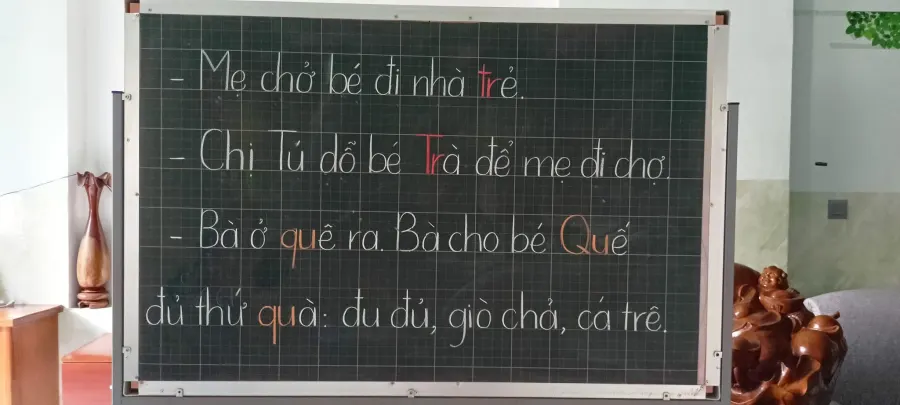 - Mẹ chở bé đi nhà trẻ.
- Chị Tú dỗ bé Trà để mẹ đi chợ.
- Bà ở quê ra. Bà cho bé Quế
đủ thứ quà: đu đủ, giò chả, cá trê.